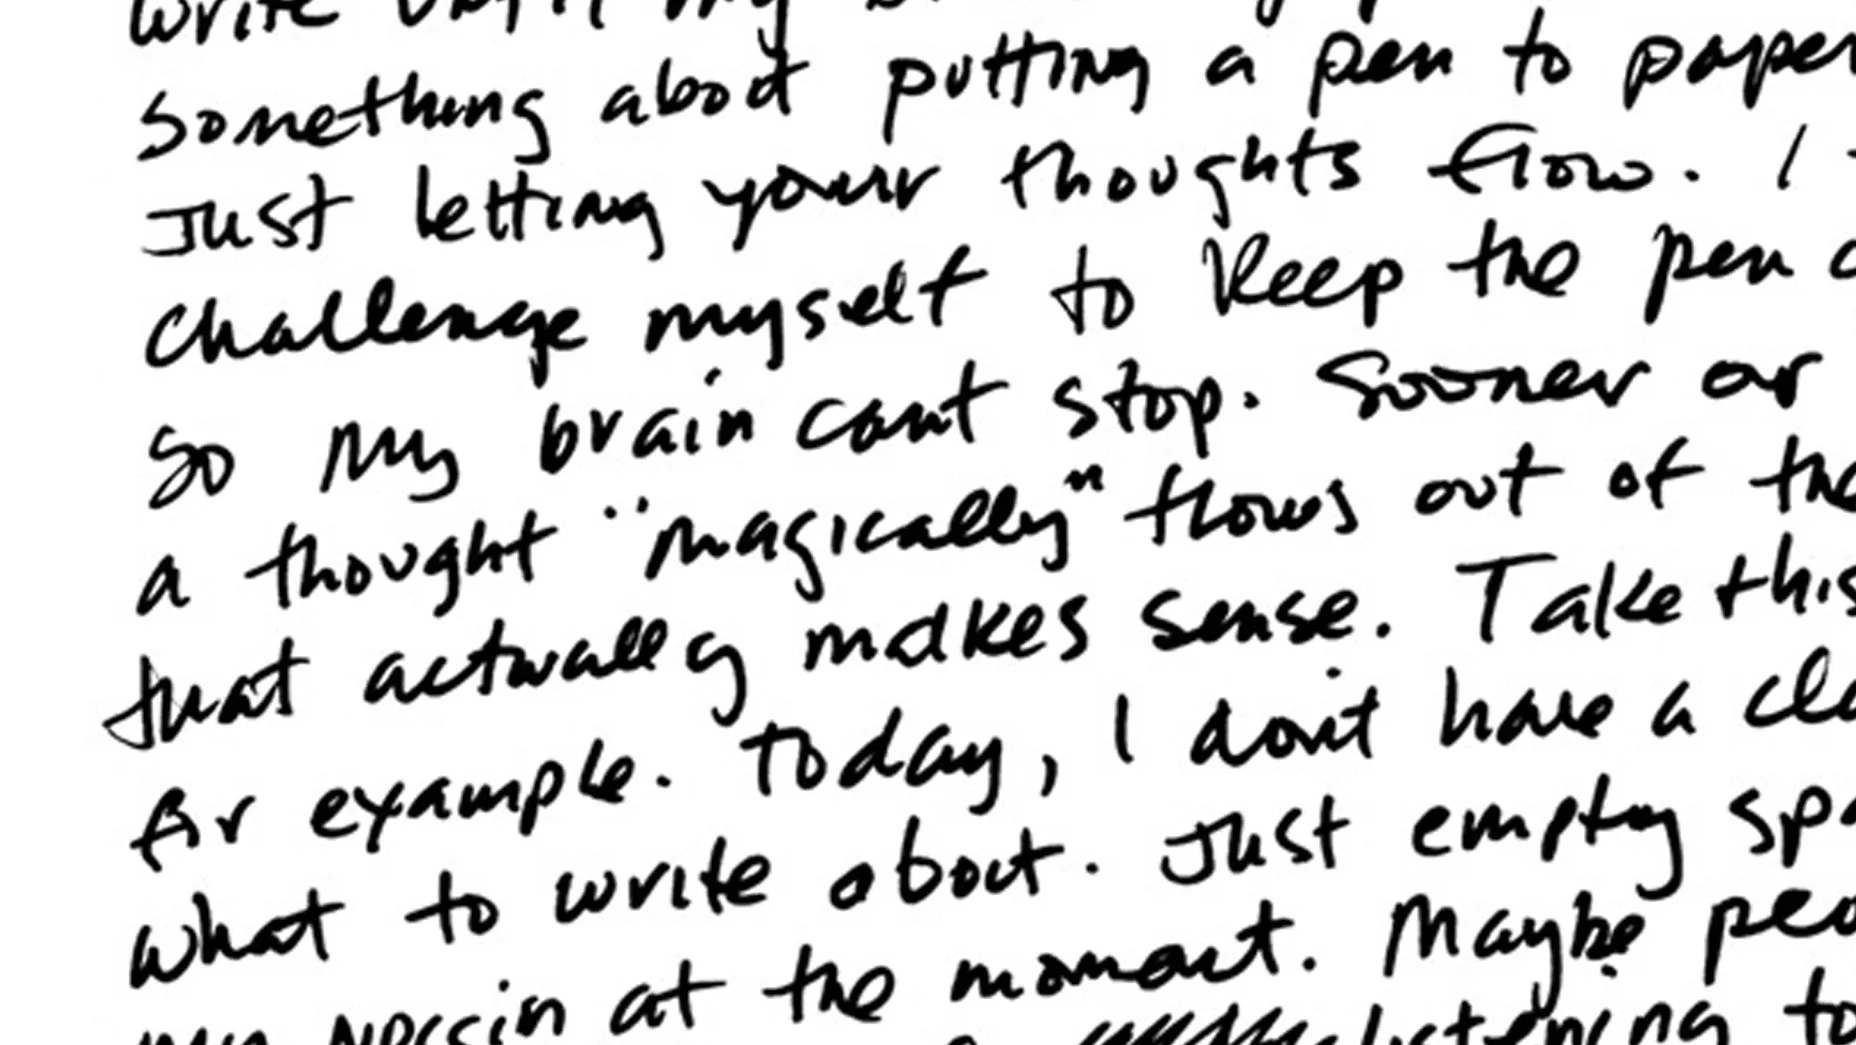 write until my
something about putting a pen to paper
Just letting your thoughts flow. I
challenge myself to keep the pen
So my brain can't stop. Sooner or
a thought "magically" flows out of the
that actually makes sense. Take this
for example. Today, I don't have a
what to write about. Just empty
at the moment. Maybe
listening to